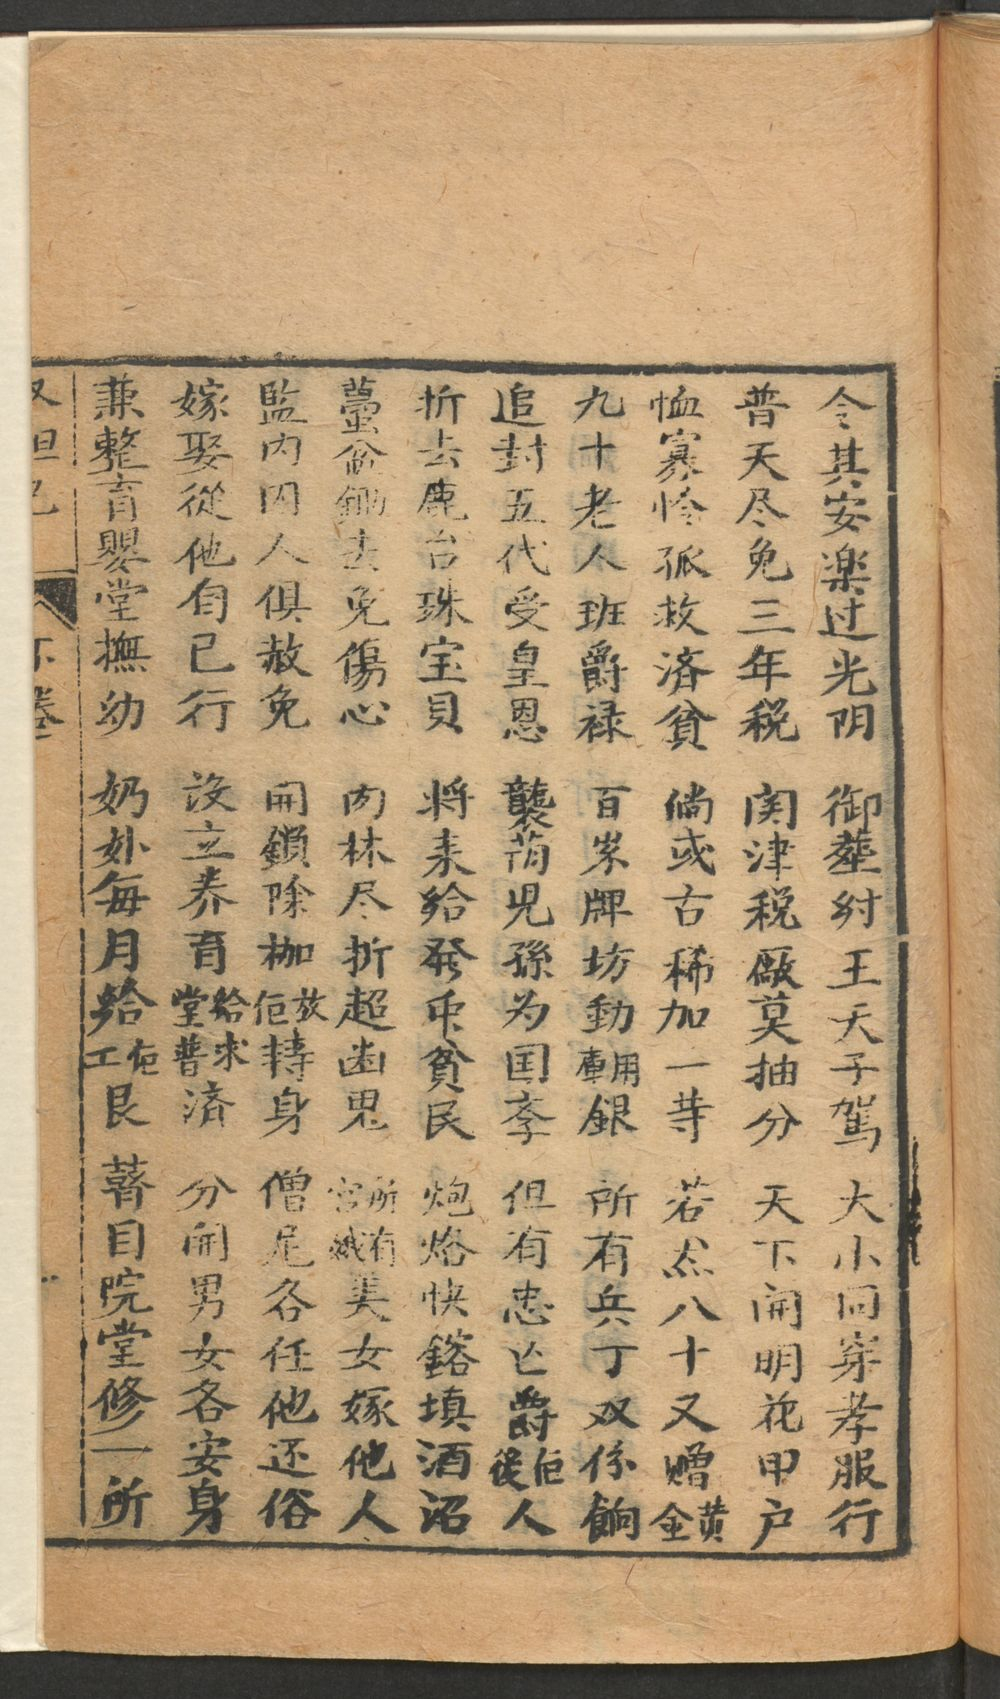 令其安楽过光阴　御塟紂王天子駕　大小同穿孝服行
普天尽免三年税　関津税厰莫抽分　天下開明花甲户
恤寡怜孤救済貧　倘或古稀加一䒭　若然八十又赠黄金
九十老人班爵禄　百岁牌坊動用庫銀　所有兵丁双俸餉
追封五代受皇恩　襲荫児孫为国孝　但有忠亡爵佢後人
折去鹿台珠宝貝　将来給發市貧民　炮烙快鎔填酒沼
蠆盆鋤去免傷心　肉林尽折超幽鬼　所有宫娥美女嫁他人
監内囚人俱赦免　開鎖除枷放佢轉身　僧尼各任他还俗
嫁娶從他自已行　設立养育給求堂普済　分開男女各安身
兼整育嬰堂撫幼　奶妣每月給佢工艮　瞽目院堂修一所
反妲己　下卷